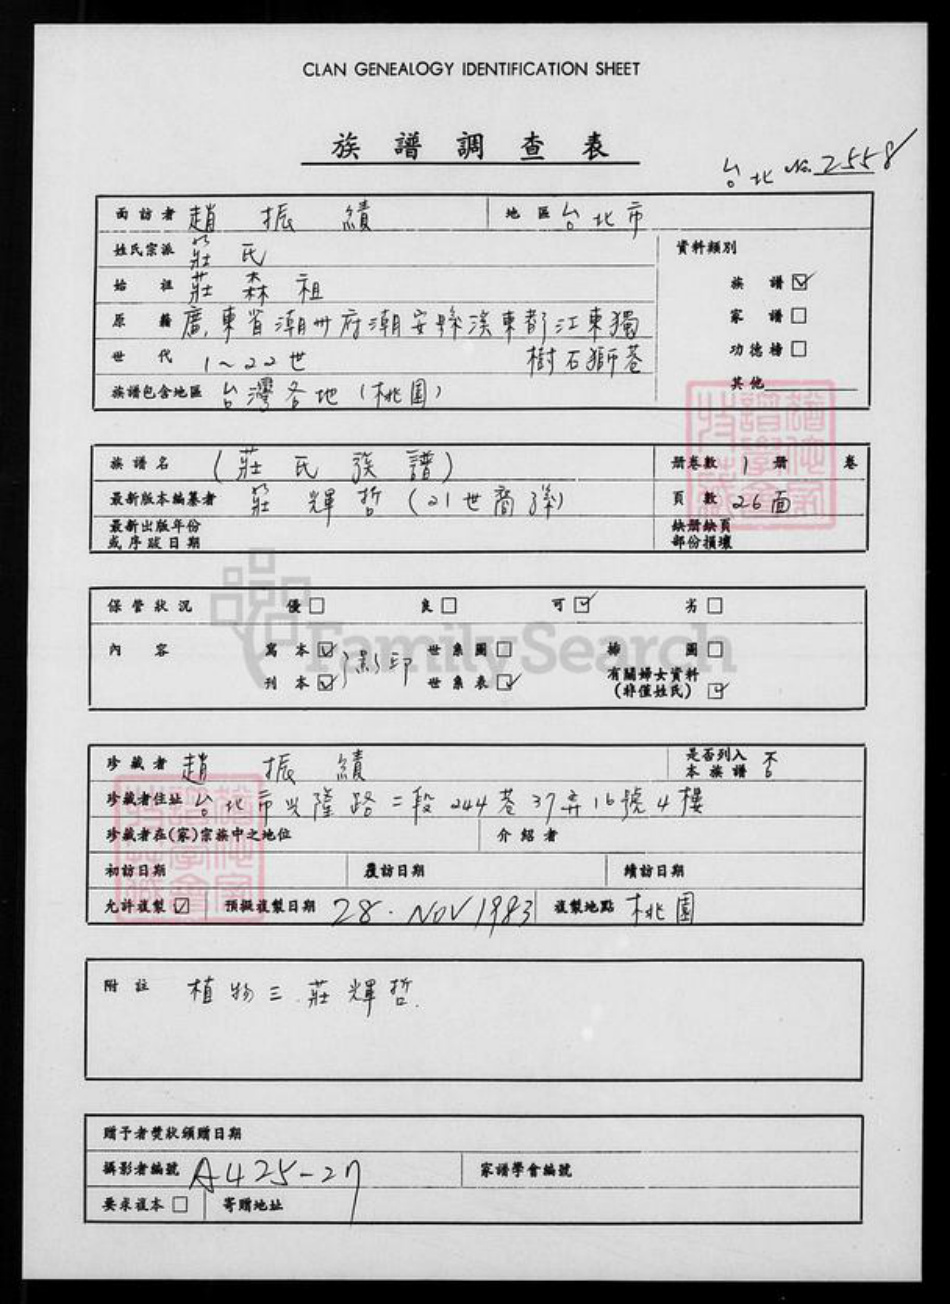 CLAN GENEALOGY IDENTIFICATION SHEET
族譜調查表
台北 No. 2558
面訪者 趙振績 地區 台北市
姓氏宗派 莊氏 資料類別
始祖 莊森祖 族譜 ☑
原籍 廣東省潮州府潮安縣溪東都江東獨 家譜 □
世代 1~22世 樹石獅巷 功德榜 □
族譜包含地區 台灣各地(桃園) 其他
族譜名 (莊氏族譜) 冊卷數 1 冊 卷
最新版本編纂者 莊輝哲(21世裔孫) 頁數 26面
最新出版年份 缺冊缺頁
或序跋日期 部份損壞
保管狀況 優 □ 良 □ 可 ☑ 劣 □
內容 寫本 ☑ 影印 世系圖 □ 插圖 □
刊本 ☑ 世系表 ☑ 有關婦女資料
(非僅姓氏) ☑
FamilySearch
珍藏者 趙振績 是否列入 否
本族譜
珍藏者住址 台北市興隆路二段244巷37弄16號4樓
珍藏者在(家)宗族中之地位 介紹者
初訪日期 覆訪日期 續訪日期
允許複製 ☑ 預擬複製日期 28. NOV 1983 複製地點 桃園
附註 植物三.莊輝哲.
贈予者獎狀頒贈日期
攝影者編號 A425-27 家譜學會編號
要求複本 □ 寄贈地址